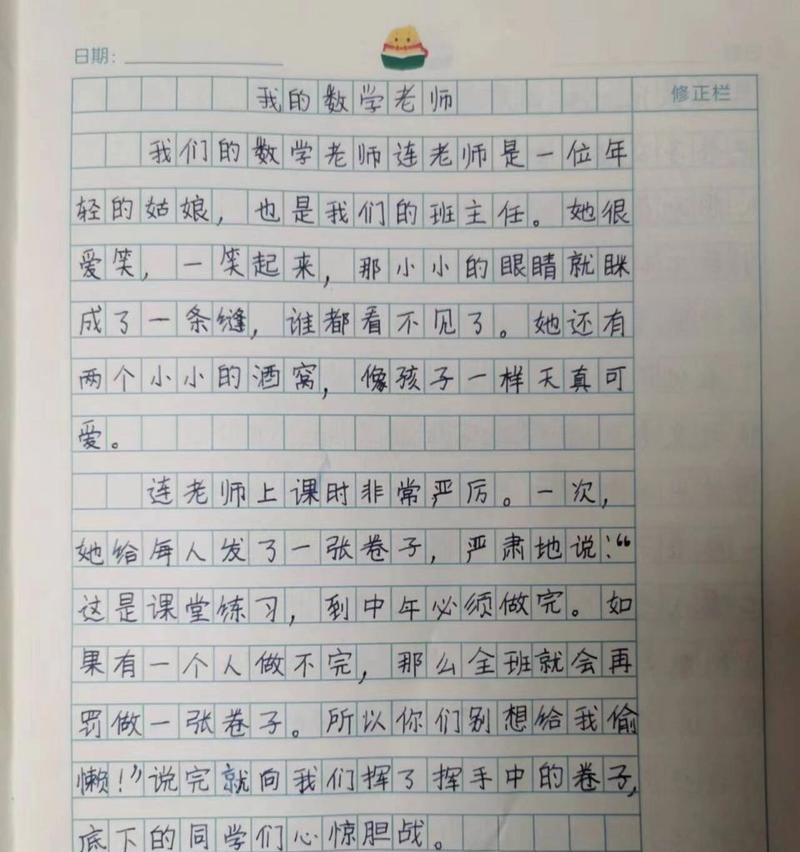 日期：
修正栏
我的数学老师
我们的数学老师连老师是一位年
轻的姑娘，也是我们的班主任。她很
爱笑，一笑起来，那小小的眼睛就眯
成了一条缝，谁都看不见了。她还有
两个小小的酒窝，像孩子一样天真可
爱。
连老师上课时非常严厉。一次，
她给每人发了一张卷子，严肃地说：“
这是课堂练习，到中午必须做完。如
果有一个人做不完，那么全班就会再
罚做一张卷子。所以你们别想给我偷
懒！”说完就向我们挥了挥手中的卷子，
底下的同学们心惊胆战。